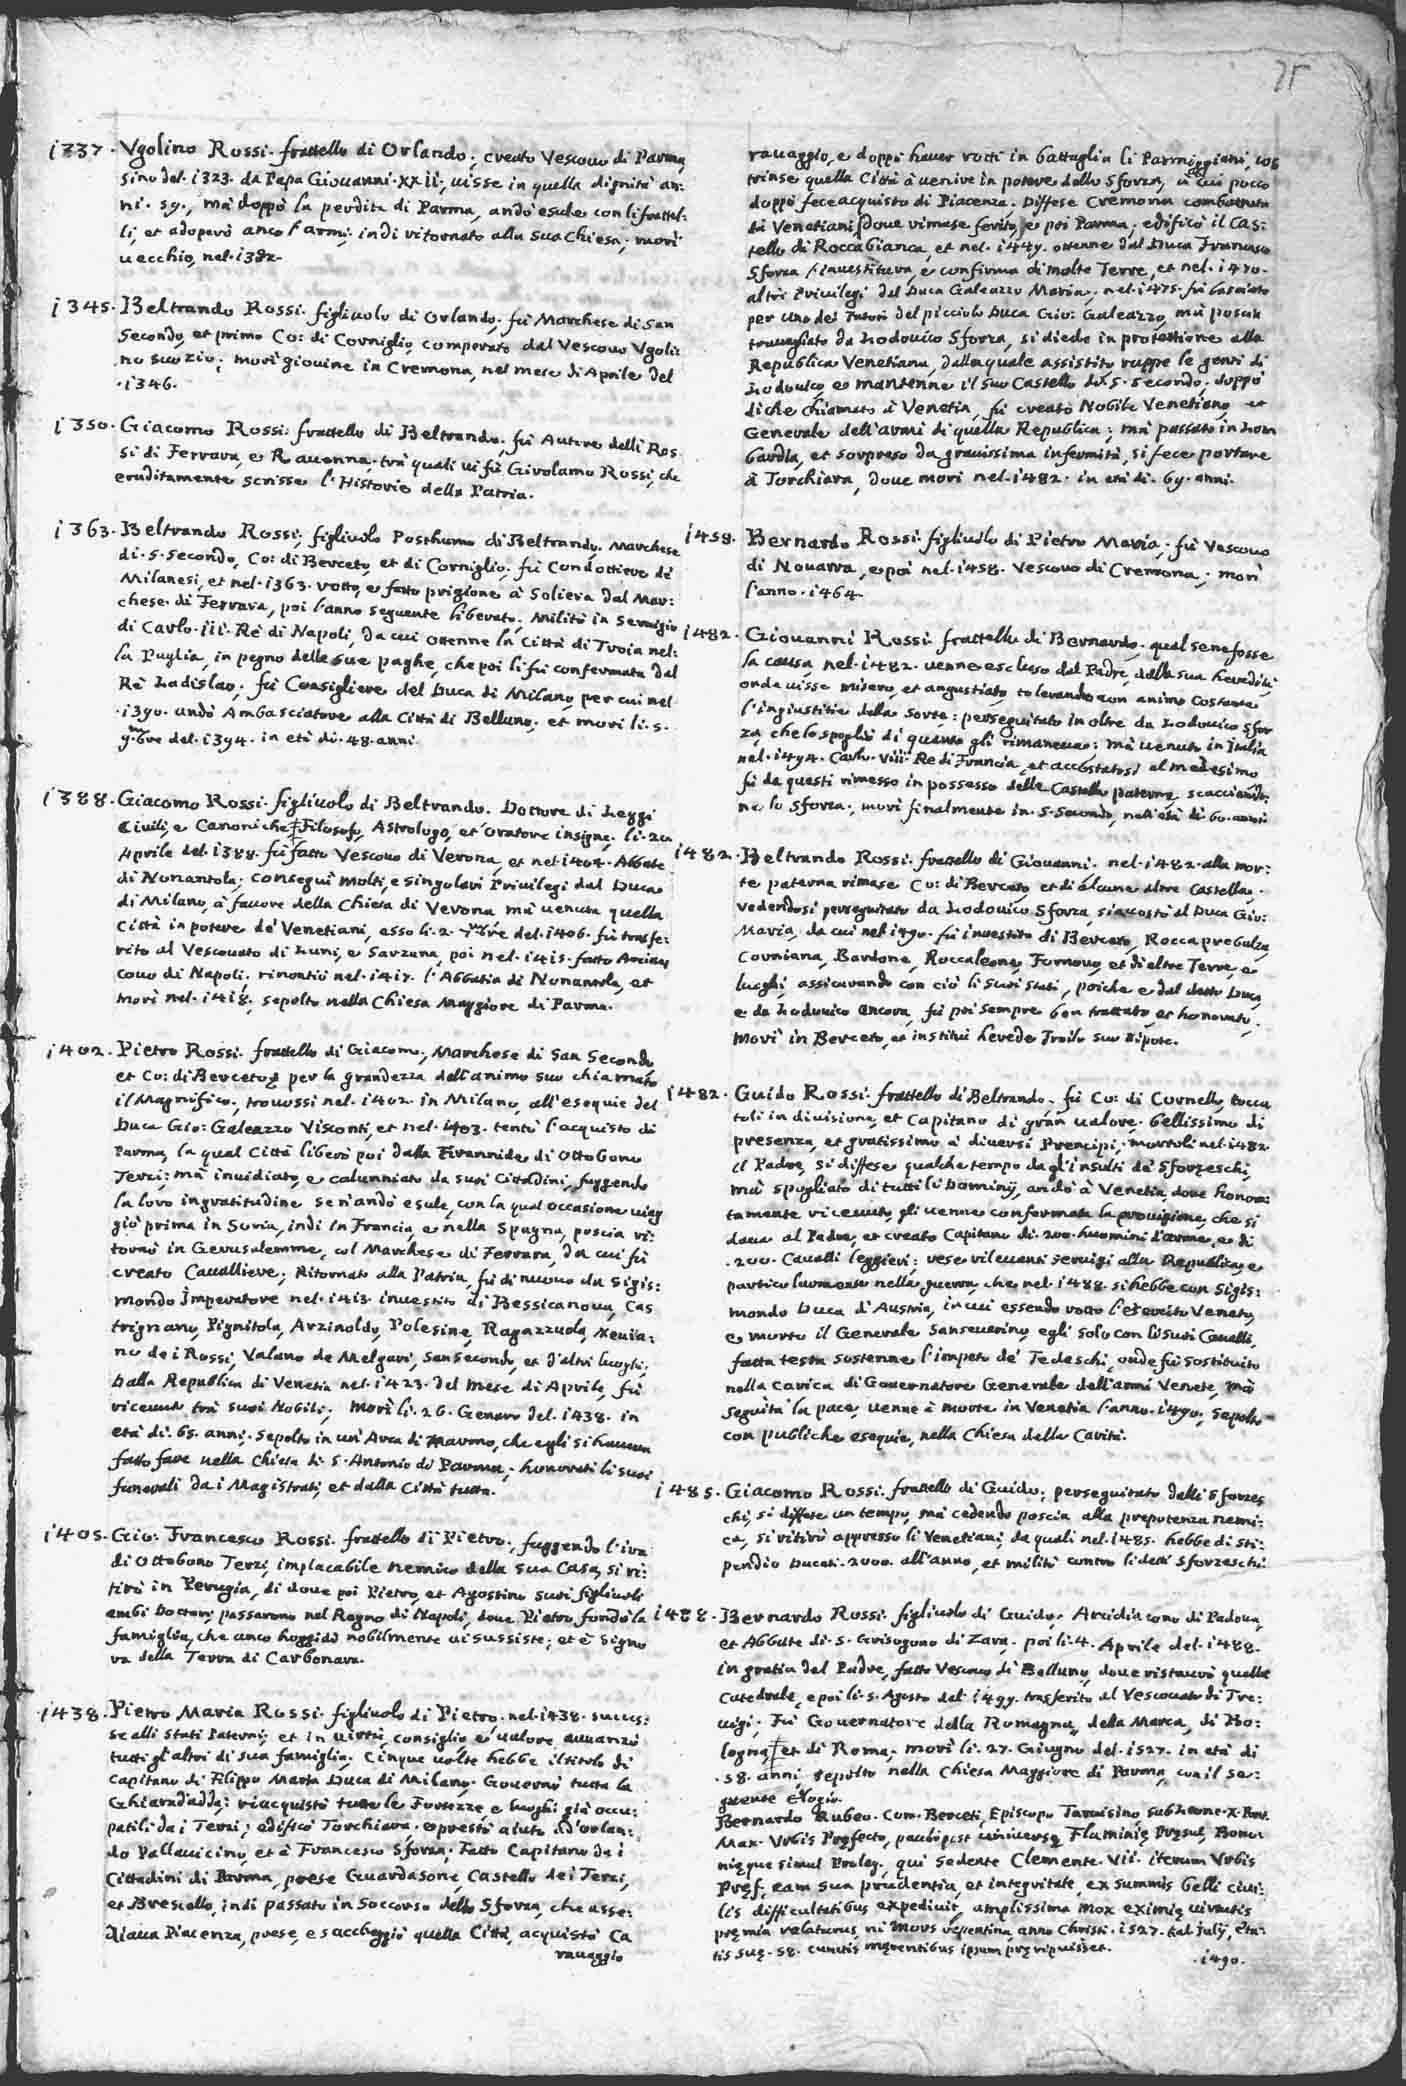 75
1337. Vgolino Rossi. frattello di Orlando, creato Vescouo di Parma,
sino del. 1323. da Papa Giouanni. XXII., uisse in quella dignità an:
ni. 59., mà doppò la perdita di Parma, andò esule con li frattel-
li, et adoperò anco l'armi, indi ritornato alla sua Chiesa, morì
uecchio, nel. 1382.
1345. Beltrando Rossi. figliuolo di Orlando, fù Marchese di San
Secondo, et primo Co: di Corniglio, comperato dal Vescouo Vgoli:
no suo zio; morì giouine in Cremona, nel mese di Aprile del
.1346.
1350. Giacomo Rossi. frattello di Beltrando, fù Autore delli Ros-
si di Ferrara, e Rauenna, trà quali ui fù Girolamo Rossi, che
eruditamente scrisse l'Historie della Patria.
1363. Beltrando Rossi, figliuolo Posthumo di Beltrando, Marchese
di. S. Secondo, Co: di Berceto, et di Corniglio, fù Condottiere de
Milanesi, et nel. 1363. rotto, e fatto prigione à Soliera dal Mar:
chese di Ferrara, poi l'anno seguente liberato; Militò in seruigio
di Carlo. III. Rè di Napoli, da cui ottenne la Città di Troia nel:
la Puglia, in pegno delle sue paghe, che poi li fù confermata dal
Rè Ladislao; fù Consigliere del Duca di Milano, per cui nel
.1390. andò Ambasciatore alla Città di Belluno, et morì li. 5.
9mbre del. 1394. in età di. 48. anni.
1388. Giacomo Rossi. figliuolo di Beltrando. Dottore di Leggi
Ciuili, e Canoniche, Filosofo, Astrologo, et Oratore insigne, li. 20
Aprile del. 1388. fù fatto Vescouo di Verona, et nel. 1404. Abbate
di Nonantola; conseguì molti, e singolari Priuilegi dal Duca
di Milano, à fauore della Chiesa di Verona mà uenuta quella
Città in potere de' Venetiani, esso li. 2. del. 1406. fù trasfe:
rito al Vescouato di Luni, e Sarzana, poi nel. 1415. fatto Arciues
couo di Napoli, rinontiò nel. 1417. l'Abbatia di Nonantola, et
morì nel. 1418. sepolto nella Chiesa Maggiore di Parma.
1402. Pietro Rossi. frattello di Giacomo, Marchese di San Secondo
et Co: di Berceto, per la grandezza dell'animo suo chiamato
il Magnifico, trouossi nel. 1402. in Milano, all'esequie del
Duca Gio: Galeazzo Visconti, et nel. 1403. tentò l'acquisto di
Parma, la qual Città liberò poi dalla Tirannide di Ottobono
Terzi; mà inuidiato, e calunniato da suoi Cittadini, fuggendo
la loro ingratitudine se n'andò esule, con la qual occasione uiag
giò prima in Soria, indi in Francia, e nella Spagna, poscia ri:
tornò in Gerusalemme, col Marchese di Ferrara, da cui fù
creato Caualliere; Ritornato alla Patria, fù di nuouo da Sigis:
mondo Imperatore nel. 1413. inuestito di Bessicanoua, Cas
trignano, Pignitola, Arzinoldo, Polesine, Ragazzuola, Neuia:
no de i Rossi, Valano de Melgari, San Secondo, et d'altri luoghi;
Dalla Republica di Venetia nel. 1423. del mese di Aprile, fù
riceuuto trà suoi Nobili; morì li. 26. Genaro del. 1438. in
età di. 65. anni, sepolto in un'Arca di Marmo, che egli si haueua
fatto fare nella Chiesa di. S. Antonio di Parma, honorati li suoi
funerali da i Magistrati, et dalla Città tutta.
1405. Gio: Francesco Rossi. frattello di Pietro, fuggendo l'ira
di Ottobono Terzi, implacabile nemico della sua Casa, si ri:
tirò in Perugia, di doue poi Pietro, et Agostino suoi figliuoli
ambi Dottori, passarono nel Regno di Napoli, doue Pietro fondò la
famiglia, che anco hoggidì nobilmente ui sussiste; et è Signo
ra della Terra di Carbonara.
1438. Pietro Maria Rossi. figliuolo di Pietro. nel. 1438. succes:
se alli Stati Paterni; et in uirtù, consiglio, e ualore, auanzò
tutti gl'altri di sua famiglia. Cinque uolte hebbe il titolo di
Capitano di Filippo Maria Duca di Milano. Gouernò tutta la
Ghiaradadda; riacquistò tutte le Fortezze e luoghi già occu:
patili da i Terzi; edificò Torchiara. e prestò aiuto ad'Orlan:
do Pallauicino, et à Francesco Sforza; Fatto Capitano da i
Cittadini di Parma, prese Guardasone, Castello de i Terzi,
et Brescello, indi passato in Soccorso dello Sforza, che asse:
diaua Piacenza, prese, e saccheggiò quella Città, acquistò Ca
rauaggio
rauaggio, e doppò hauer rotti in battaglia li Parmiggiani, cos
trinse quella Città à uenire in potere dello Sforza, à cui pocco
doppò fece acquisto di Piacenza. Diffese Cremona combattuta
da Venetiani, doue rimase ferito, e poi Parma, edificò il Cas:
tello di Roccabianca, et nel. 1449. ottenne dal Duca Francesco
Sforza l'inuestitura, e confirma di molte Terre, et nel. 1470.
altri Priuilegi dal Duca Galeazzo Maria, nel. 1475. fù lasciato
per uno dei Tutori del picciolo Duca Gio: Galeazzo, mà poscia
trauagliato da Lodouico Sforza, si diede in protettione alla
Republica Venetiana, dalla quale assistito ruppe le genti di
Lodouico, e mantenne il suo Castello di. S. Secondo. doppò
di che chiamato à Venetia, fù creato Nobile Venetiano, et
Generale dell'armi di quella Republica; mà passato in Lom
bardia, et sorpreso da grauissima infermità, si fece portare
à Torchiara, doue morì nel. 1482. in età di. 69. anni.
1458. Bernardo Rossi. figliuolo di Pietro Maria. fù Vescouo
di Nouarra, e poi nel. 1458. Vescouo di Cremona, morì
l'anno. 1464.
1482. Giouanni Rossi. frattello di Bernardo. qual se ne fosse
la causa, nel. 1482. uenne escluso dal Padre, dalla sua heredità,
onde uisse misero, et angustiato, tolerando con animo costante
l'ingiustitie della sorte: perseguitato in oltre da Lodouico Sfor
za, che lo spogliò di quanto gli rimaneua; mà uenuto in Italia
nel. 1494. Carlo. VIII. Rè di Francia, et accostatosi al medesimo
fù da questi rimesso in possesso delle Castella paterne, scacciando:
ne lo Sforza; morì finalmente in. S. Secondo, nell'età di. 60. anni.
1482. Beltrando Rossi. frattello di Giouanni. nel. 1482. alla mor:
te paterna rimase Co: di Berceto, et di alcune altre Castella.
Vedendosi perseguitato da Lodouico Sforza, s'accostò al Duca Gio:
Maria, da cui nel 1490. fù inuestito di Berceto, Roccaprebalza,
Corniana, Bardone, Roccaleone, Fornouo, et di altre Terre, e
luoghi, assicurando con ciò li suoi stati, poiche e dal detto Duca,
e da Lodouico ancora, fù poi sempre ben trattato, et honorato,
Morì in Berceto, et instituì herede Troilo suo Nipote.
1482. Guido Rossi. frattello di Beltrando. fù Co: di Cornello, tocca
toli in diuisione, et Capitano di gran ualore. bellissimo di
presenza, et gratissimo à diuersi Prencipi, mortoli nel. 1482
il Padre, si diffese qualche tempo da gl'insulti de' Sforzeschi,
mà spogliato di tutti li Dominij, andò à Venetia, doue honora:
tamente riceuuto, gli uenne confermata la prouigione, che si
daua al Padre, et creato Capitano di. 200. huomini d'arme, e di
.200. Caualli leggieri; rese rileuanti seruigi alla Republica, e
particolarmente nella guerra, che nel. 1488. si hebbe con Sigis:
mondo Duca d'Austria, in cui essendo rotto l'essercito Veneto,
e morto il Generale Sanseuerino, egli solo con li suoi Caualli,
fatta testa sostenne l'impeto de' Tedeschi, onde fù sostituito
nella carica di Gouernatore Generale dell'armi Venete, mà
seguita la pace, uenne à morte in Venetia l'anno. 1490; sepolto
con publiche esequie, nella Chiesa della Carità.
1485. Giacomo Rossi. frattello di Guido; perseguitato dalli Sforzes
chi, si diffese un tempo, mà cedendo poscia alla prepotenza nemi:
ca, si ritirò appresso li Venetiani; da quali nel. 1485. hebbe di sti:
pendio Ducati. 2000. all'anno, et militò contro li detti Sforzeschi
1488. Bernardo Rossi. figliuolo di Guido, Arcidiacono di Padoua,
et Abbate di. S. Grisogono di Zara. poi li. 4. Aprile del. 1488.
in gratia del Padre, fatto Vescouo di Belluno, doue ristaurò quella
Catedrale, e poi li. 5. Agosto del. 1499. trasferito al Vescouato di Tre:
uigi. Fù Gouernatore della Romagna, della Marca, di Bo:
logna, et di Roma. morì li. 27. Giugno del. 1527. in età di
.58. anni sepolto nella Chiesa Maggiore di Parma, con il se:
guente Elogio.
Bernardo Rubeo. Com. Berceti, Episcopo Taruisino, sub Leone. X. Pont.
Max. Vrbis Pręfecto, pauloq; post uniuersę Flaminię Pręsul, Bono:
nięque simul Proleg. qui sedente Clemente. VII. iterum Vrbis
Pręf. eam sua prudentia, et integritate, ex summis belli ciui:
lis difficultatibus expediuit, amplissima mox eximię uirtutis
pręmia relaturus, ni mors repentina, anno Christi. 1527. Kal. Julij, ęta:
tis suę. 58. cunctis męrentibus ipsum pręripuisset.
.1490.